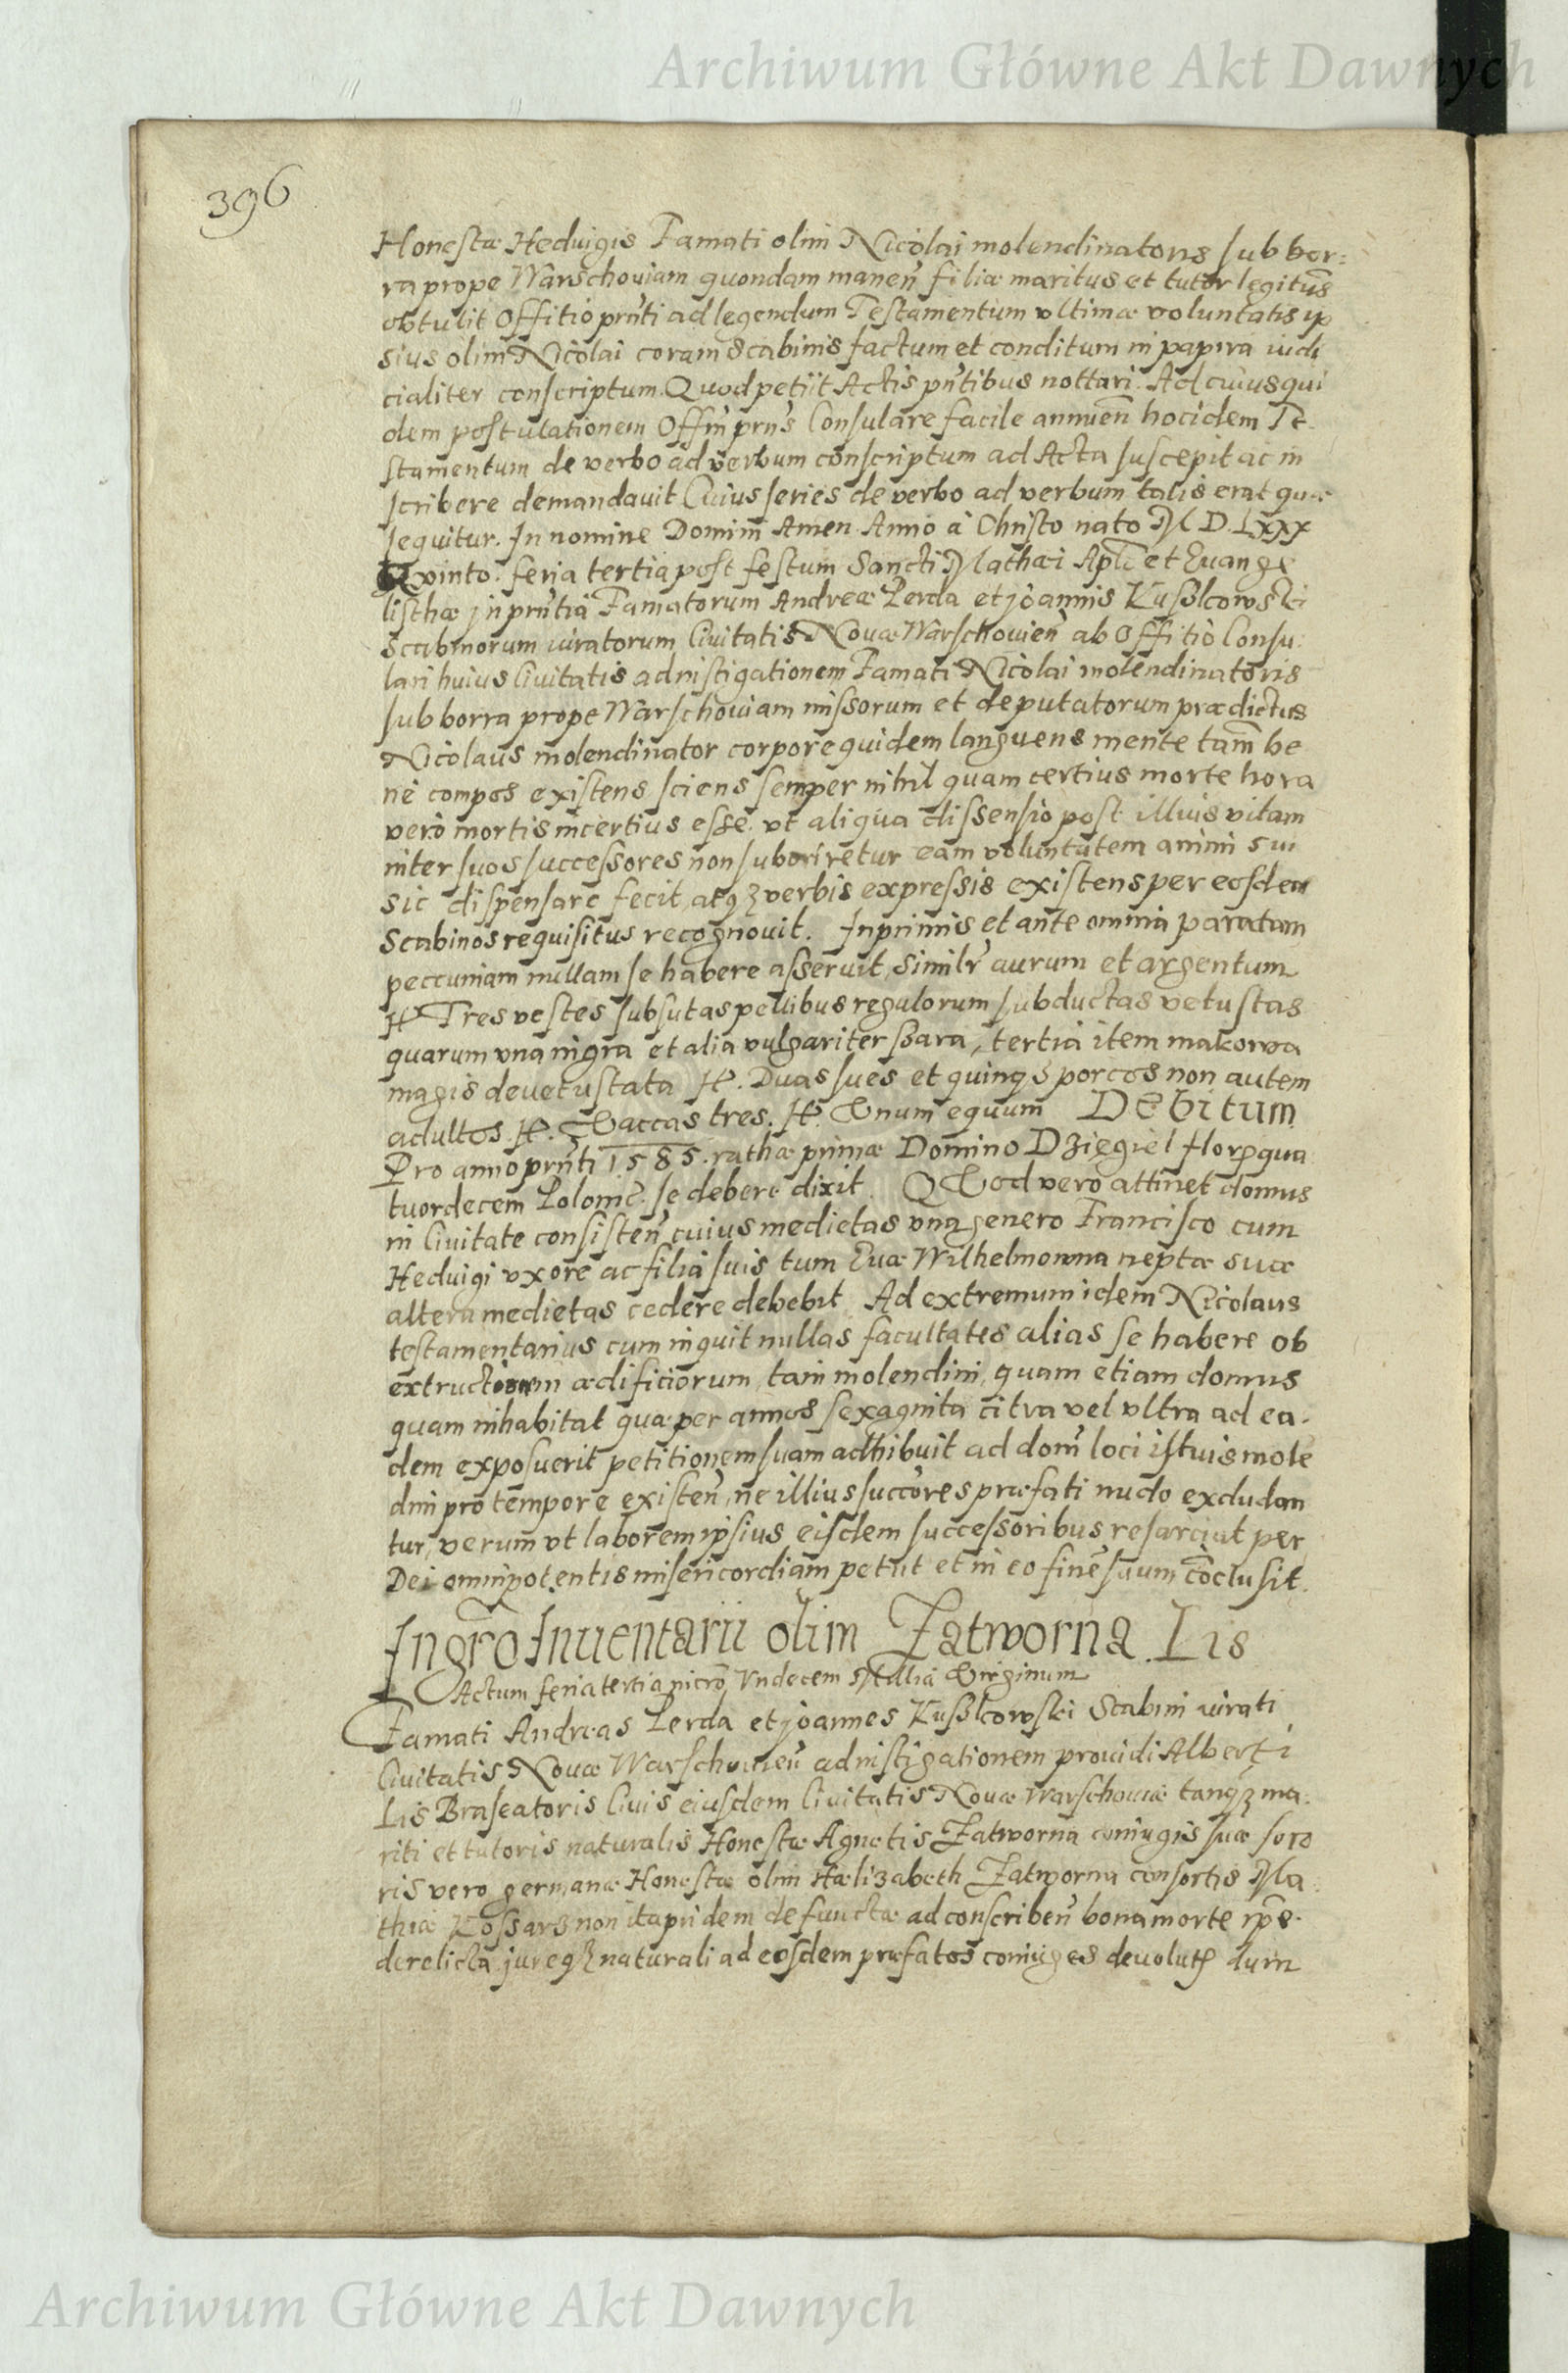 Archiwum Główne Akt Dawnych
396
Honestæ Heduigis Famati olim Nicolai molendinatoris sub bor:
ra prope Warschouiam quondam maneñ filiæ maritus et tutor legitũs
obtulit Offitio prñti ad legendum Testamentum vltimæ voluntatis ip
sius olim Nicolai coram Scabinis factum et conditum in papira iudi
cialiter conscriptum. Quod petiit Actis pñtibus nottari. Ad cuius qui
dem postulationem Offm̃ prñs Consulare facile annueñ hoc idem Te
stamentum de verbo ad verbum conscriptum ad Acta suscepit ac in
scribere demandauit Cuius series de verbo ad verbum talis erat quæ
sequitur. In nomine Domini Amen Anno à Christo nato M D. Lxxx
Qvinto. feria tertia post festum Sancti Mathæi Apli et Euange
listhæ in prñtia Famatorum Andreæ Perda et Joannis Kusßlcowski
Scabinorum iuratorum Ciuitatis Nouæ Warschouieñ ab Offitio Consu
lari huius Ciuitatis ad nistigationem Famati Nicolai molendinatoris
sub borra prope Warschouiam missorum et deputatorum prædictus
Nicolaus molendinator corpore quidem languens mente tam̃ be
nè compos existens sciens semper nihil quam certius morte hora
vero mortis incertius esse. vt aliqua dissensio post illuis vitam
inter suos successores non suboriretur eam voluntatem animi sui
sic dispensare fecit, atqȝ verbis expressis existens per eosdem
Scabinos requisitus recognouit. Inprimis et ante omnia paratam
peccuniam nullam se habere asseruit, similr̃ aurum et argentum
It Tres vestes subsutas pellibus regulorum subductas vetustas
quarum vna nigra et alia vulgariter sßara, tertia item makowa
magis deuetustata It. Duas sues et quinqȝ porcos non autem
adultos. It. Vaccas tres. It. Vnum equum Debitum
Pro anno prñti 1585. rathæ primæ Domino Dzięgiel flor qua
tuordecem Polonic̃. se debere dixit. QVod vero attinet domus
in Ciuitate consisteñ cuius medietas vna genero Francisco cum
Heduigi vxore ac filia suis tum Euæ Wilhelmowna neptæ suæ
altera medietas cedere debebit. Ad extremum idem Nicolaus
testamentarius cum inquit nullas facultates alias se habere ob
extructionem ædificiorum, tam molendini, quam etiam domus
quam inhabitat quæ per annos sexaginta citra vel vltra ad ea.
dem exposuerit petitionem suam adhibuit ad dom̃ loci istuis molẽ
dini pro tempore existeñ, ne illius succores præfati nudo excludan
tur, verum vt laborem ipsius eisdem successoribus resarciat per
Dei omnipotentis misericordiam petiit et in eo finẽ suum cõclusit.
Ingrõ Inuentarii olim Zatworna. Lis
Actum feria tertia in crõ Vndecem Millia Virginum
Famati Andreas Perda et Joannes Kusßlcowski Scabini iurati
Ciuitatis Nouæ Warschouieñ ad nistigationem prouidi Alberti
Lis Braseatoris Ciuis eiusdem Ciuitatis Nouæ Warschouiæ tanqȝ ma:
riti et tutoris naturalis Honestæ Agnetis Zatworna coniugis suæ soro
ris vero germanæ Honestæ olim Hælizabeth Zatworna consortis Ma:
thiæ Kossarz non ita pridem defunctæ ad conscribeñ bona morte ip̃e.
derelicta jureqȝ naturali ad eosdem præfatos coniuges deuolut dum
Archiwum Główne Akt Dawnych